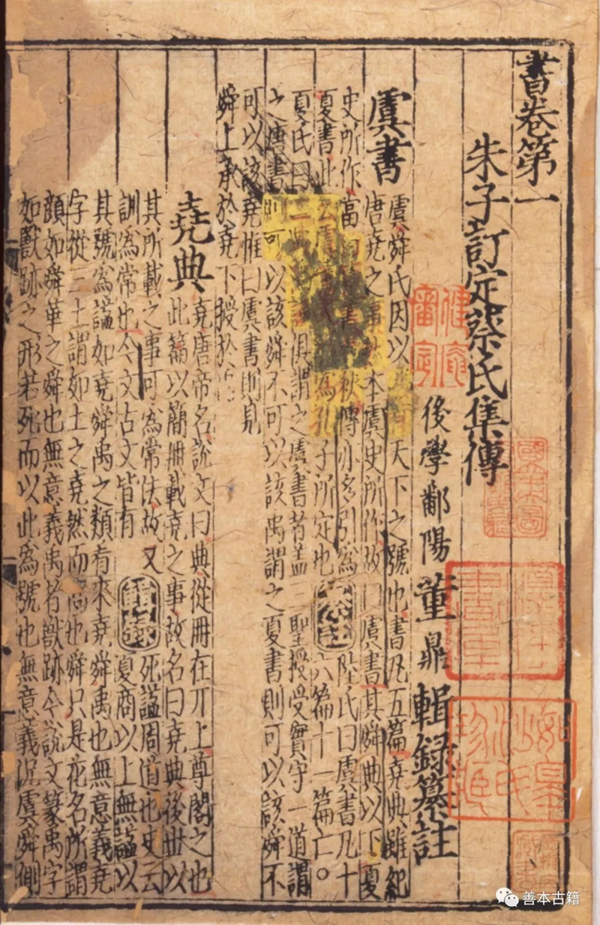 書卷第一
朱子訂定蔡氏集傳
後學鄱陽董鼎輯録纂註
虞書
虞舜氏因以天下之號也書凡五篇堯典雖紀
唐堯之事然本虞史所作故曰虞書其舜典以下夏
史所作當曰秋傳亦多引爲陸氏曰虞書凡十
夏書此云虞爲孔子所定也六篇十一篇亡○
夏氏曰二俱謂之虞書者蓋三聖授受實守一道謂
之唐書則可以該舜不可以該禹謂之夏書則可以該舜不
可以該堯惟曰虞書則見
舜上承於堯下授於
堯典
堯唐帝名說文曰典從冊在丌上尊閣之也
此篇以簡冊載堯之事故名曰堯典後世以
其所載之事可爲常法故又
訓爲常也今文古文皆有
輯録
死謚周道也史云
夏商以上無謚以
其號爲謚如堯舜禹之類看來堯舜禹也無意義堯
字從三土謂如土之堯然而高也舜只是花名所謂
顔如舜華之舜也無意義禹者獸跡今說文篆禹字
如獸跡之形若死而以此爲號也無意義況虞舜側
善本古籍